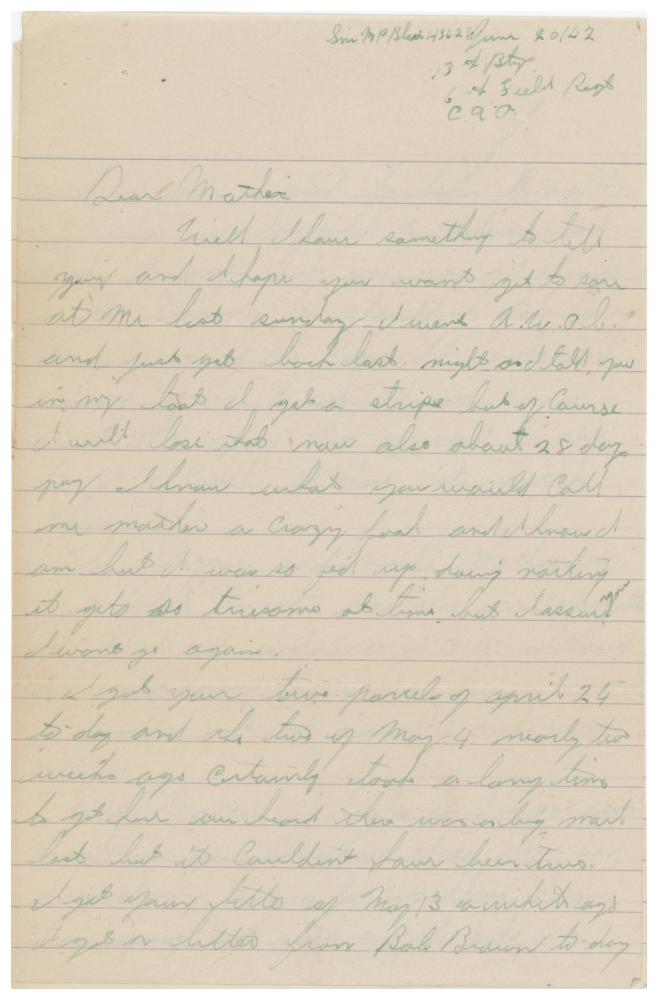 Gnr M P Blair H3628 June 20/42
13th Bty
6th Field Regt
C.A.O.
Dear Mother
Well I have something to tell
you and I hope you wont get to sore
at me last sunday I went A.W.O.L.
and just got back last night as I told you
in my last I got a stripe but of Course
I will lose that now also about 28 days
pay I know what you would Call
me mother a Crazy fool and I know I
am but I was so fed up doing nothing
it gets so tiresome at time but I assure you
I wont go again.
I got your two parcels of april 25
to day and the two of May 4 nearly two
weeks ago Certainly took a long time
to get here we heard there was a big mail
lost but it Couldint have been true.
I got your letter of May 13 a while ago
I got a letter from Bob Brown to-day